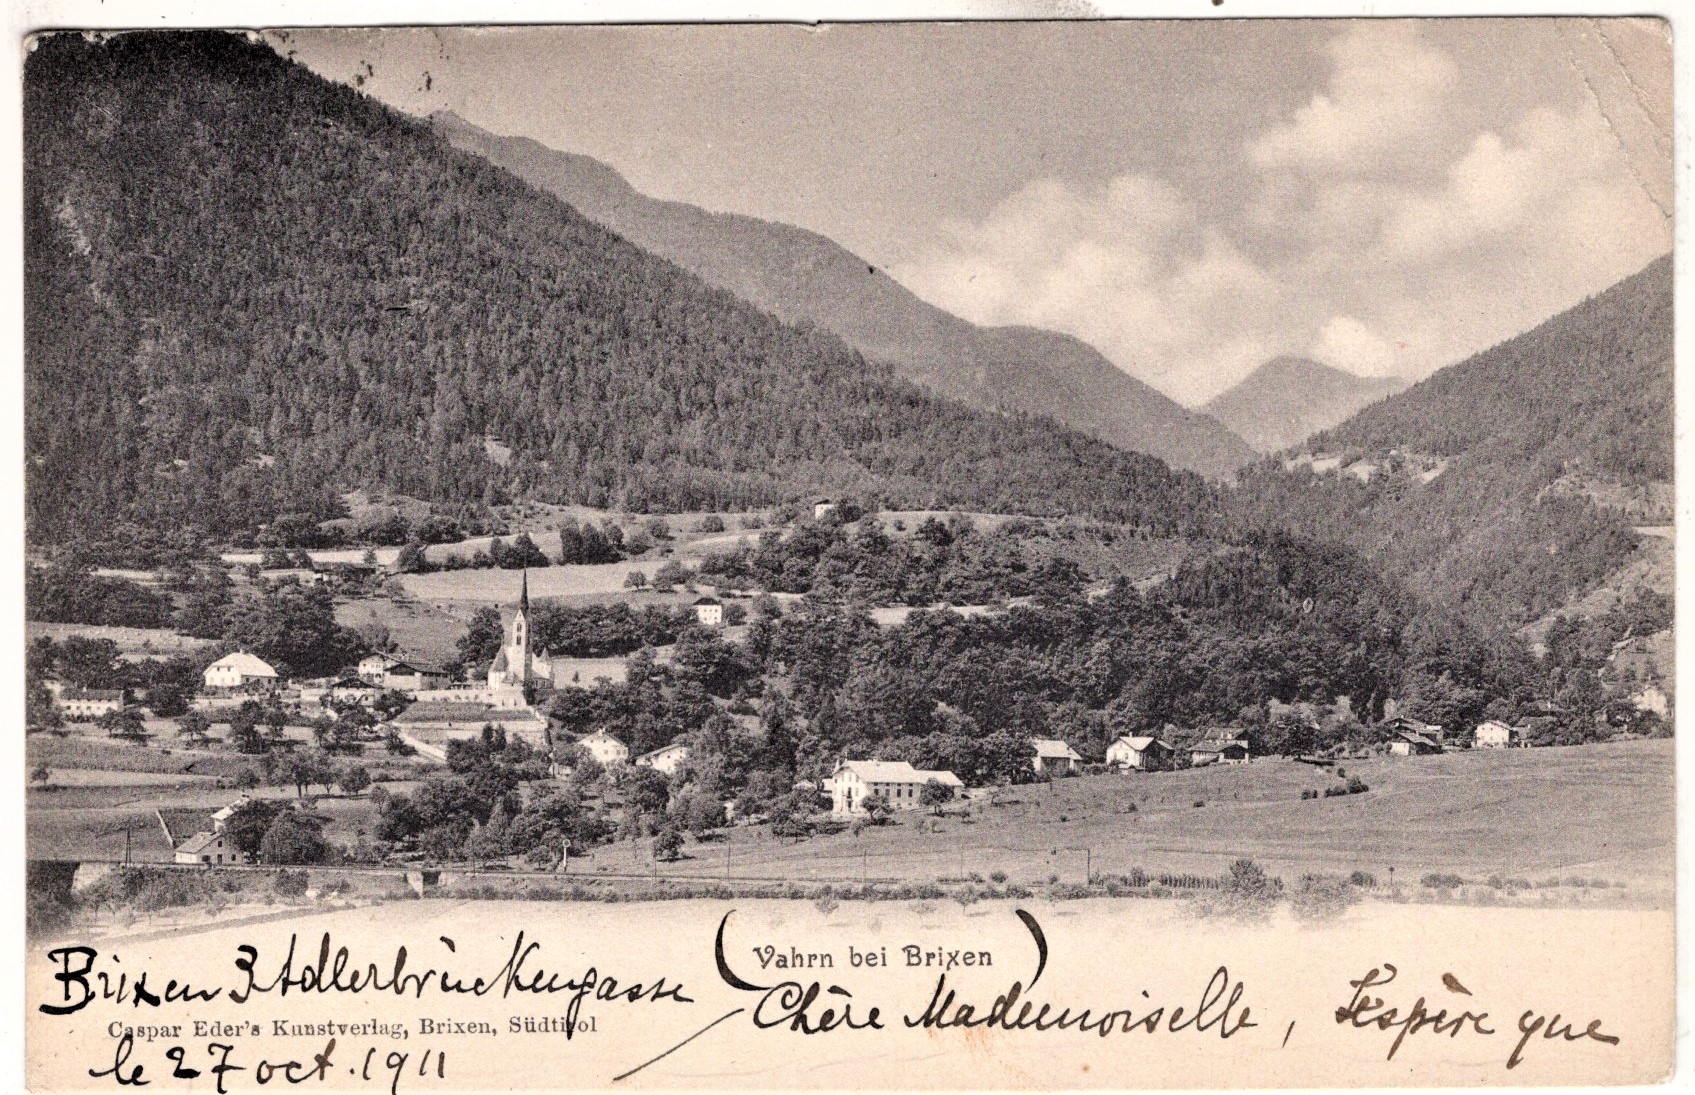 (Vahrn bei Brixen)
Brixen 3 Adlerbrückengasse
Caspar Eder's Kunstverlag, Brixen, Südtirol
le 27 oct. 1911
Chère Mademoiselle, J'espère que